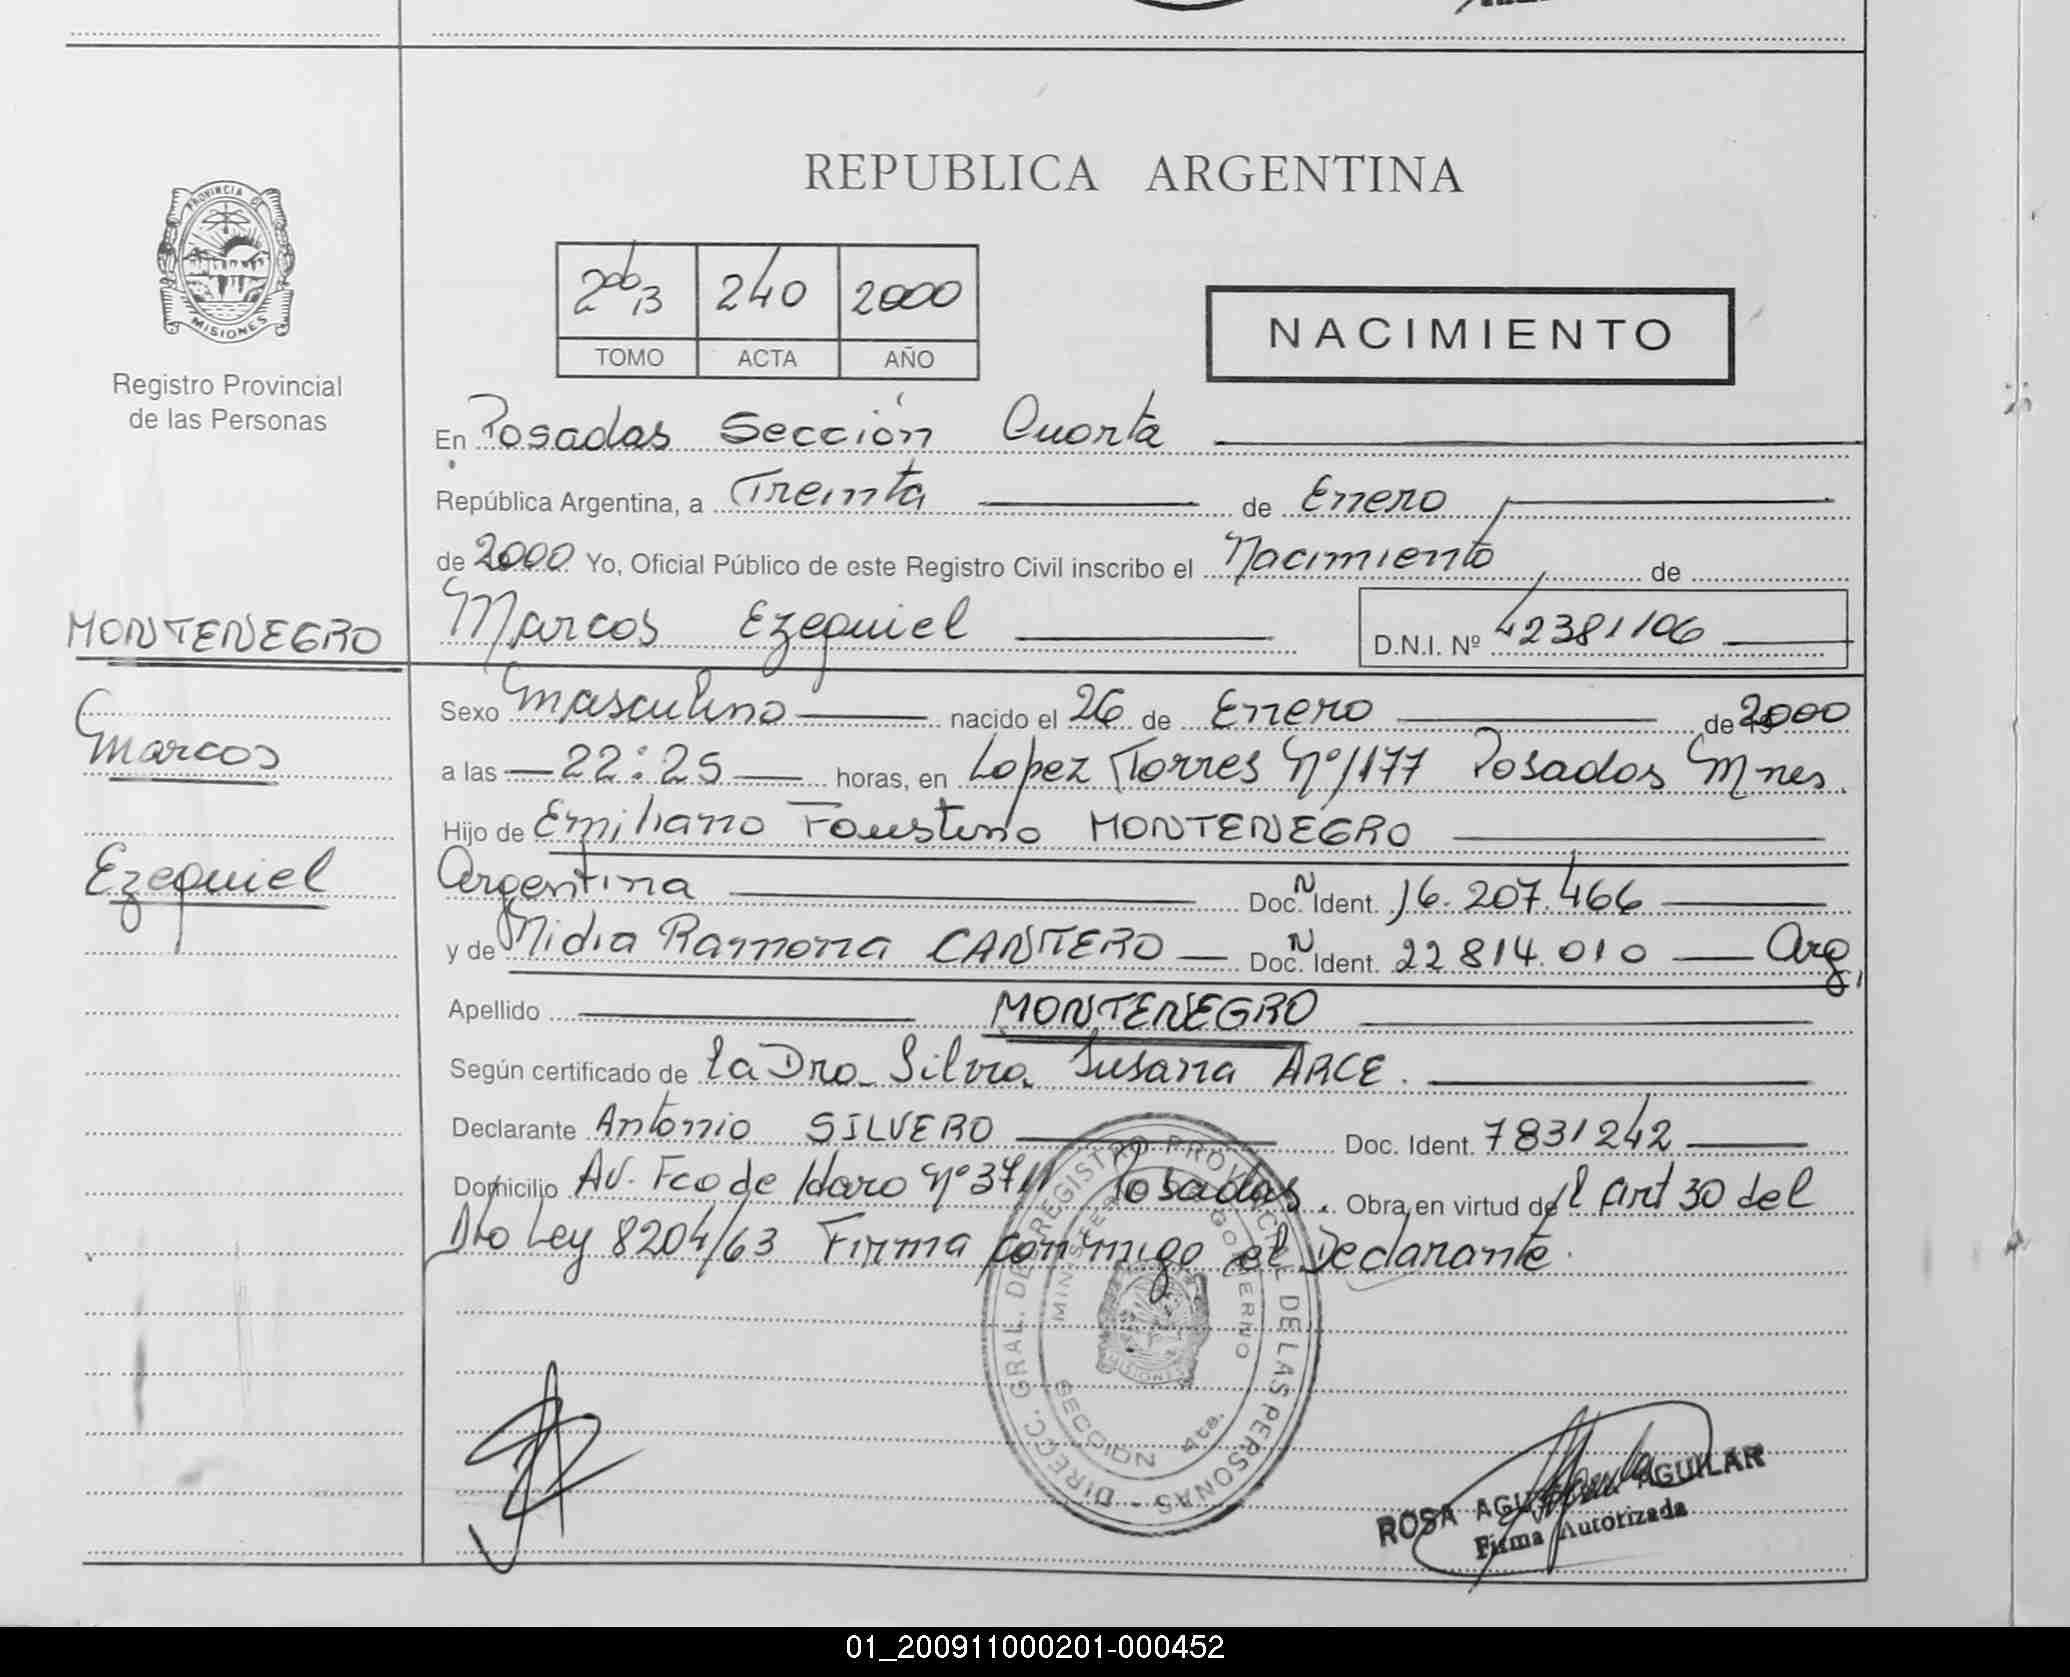 REPUBLICA ARGENTINA
PROVINCIA DE
MISIONES
Registro Provincial
de las Personas
240 2000
TOMO ACTA AÑO
NACIMIENTO
En Posadas Sección Cuarta
República Argentina, a Treinta de Enero
de 2000 Yo, Oficial Público de este Registro Civil inscribo el Nacimiento de
MONTENEGRO
Marcos Ezequiel D.N.I. Nº 42381106
Marcos
Ezequiel
Sexo Masculino nacido el 26 de Enero de 2000
a las 22:25 horas, en Lopez Torres Nº 1177 Posadas Mnes.
Hijo de Emiliano Faustino MONTENEGRO
Argentina Doc. N Ident. 16.207.466
y de Nidia Ramona CANTERO Doc. N Ident. 22 814.010 Arg.
Apellido MONTENEGRO
Según certificado de la Dra Silvia Susana ARCE.
Declarante Antonio SILVERO Doc. Ident. 7831242
Domicilio Av. Fco de Haro Nº 3711 Posadas. Obra en virtud del Art 30 del
Dto Ley 8204/63 Firma conmigo el Declarante.
DIRECC. GRAL. DE REGISTRO PROVINCIAL DE LAS PERSONAS
MINISTERIO GOBIERNO
MISIONES
SECCION 4ta.
ROSA AGUILAR
Firma Autorizada
01_200911000201-000452